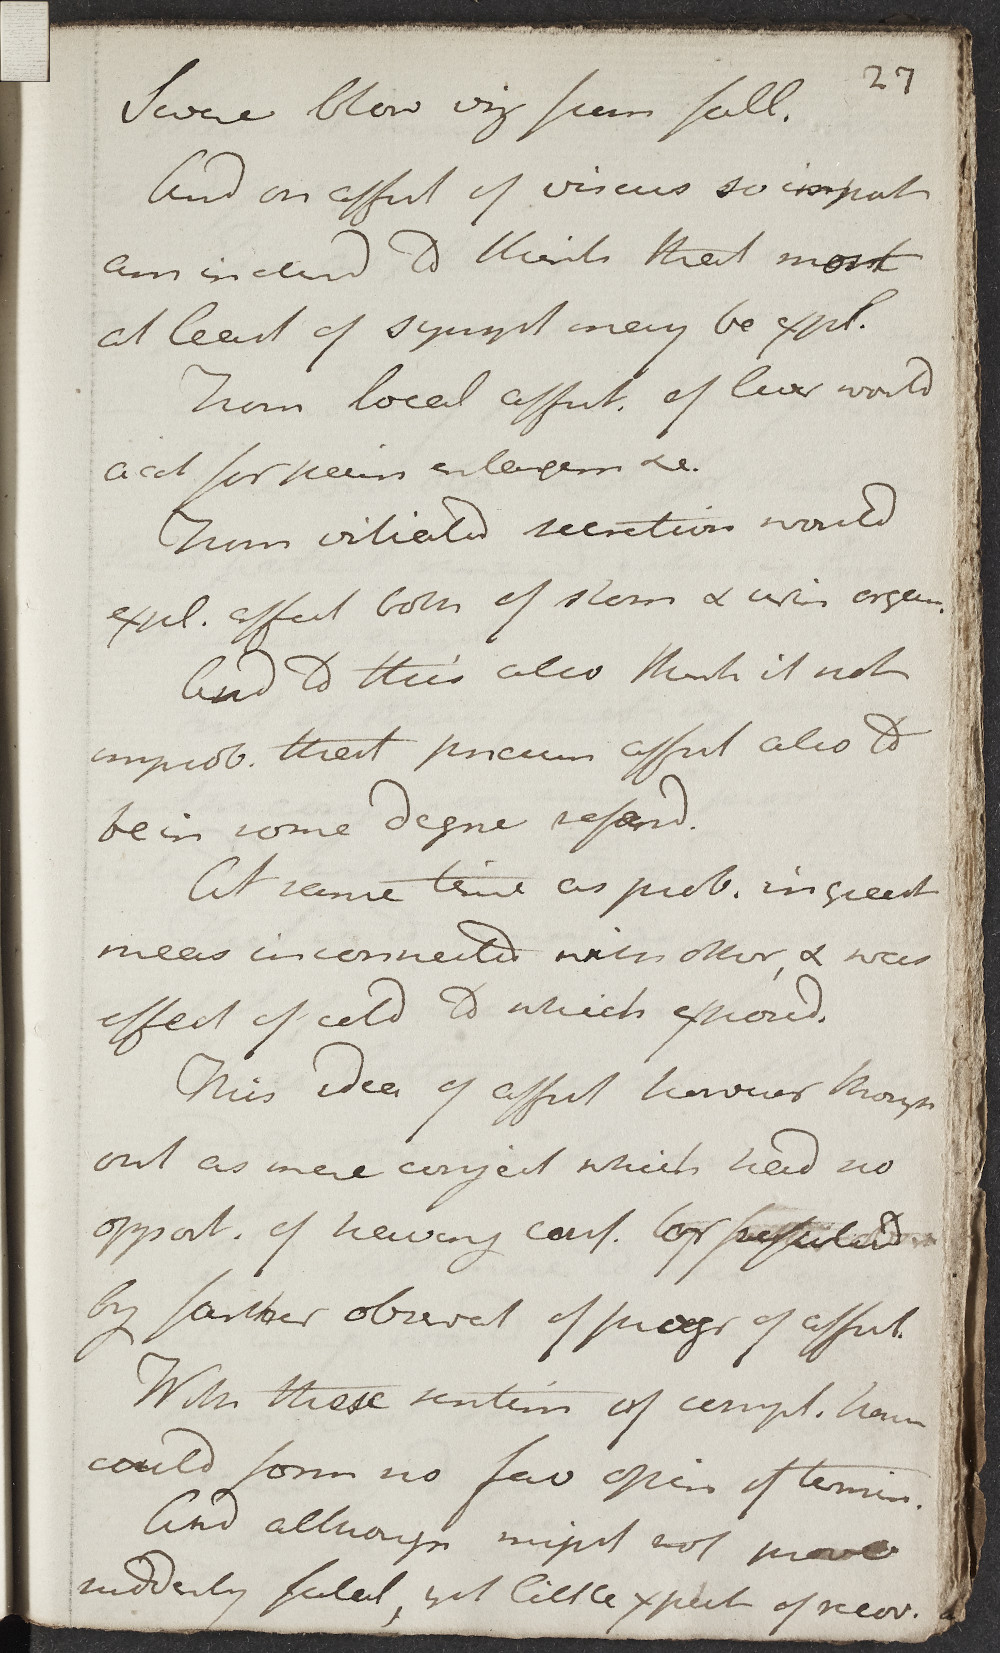 27
Severe blow viz from fall.
And on affect of viscus so import
am inclind to think that most
at least of sympt may be expl.
From local affect. of liver would
acct for pain enlargem &c.
From vitiated secretion would
expl. affect both of stom & urin organ.
And to this also think it not
improb. that pneum affect also to
be in some degree referd.
At same time as prob. in great
meas inconnected with other, & was
effect of cold to which exposed.
This idea of affect however thrown
out as mere conject which had no
opport. of having conf. or refuted
by farther observat of progr of affect.
With these sentim of compl. howr
could form no fav opin of termin.
And although might not prove
suddenly fatal, yet little expect of recov.